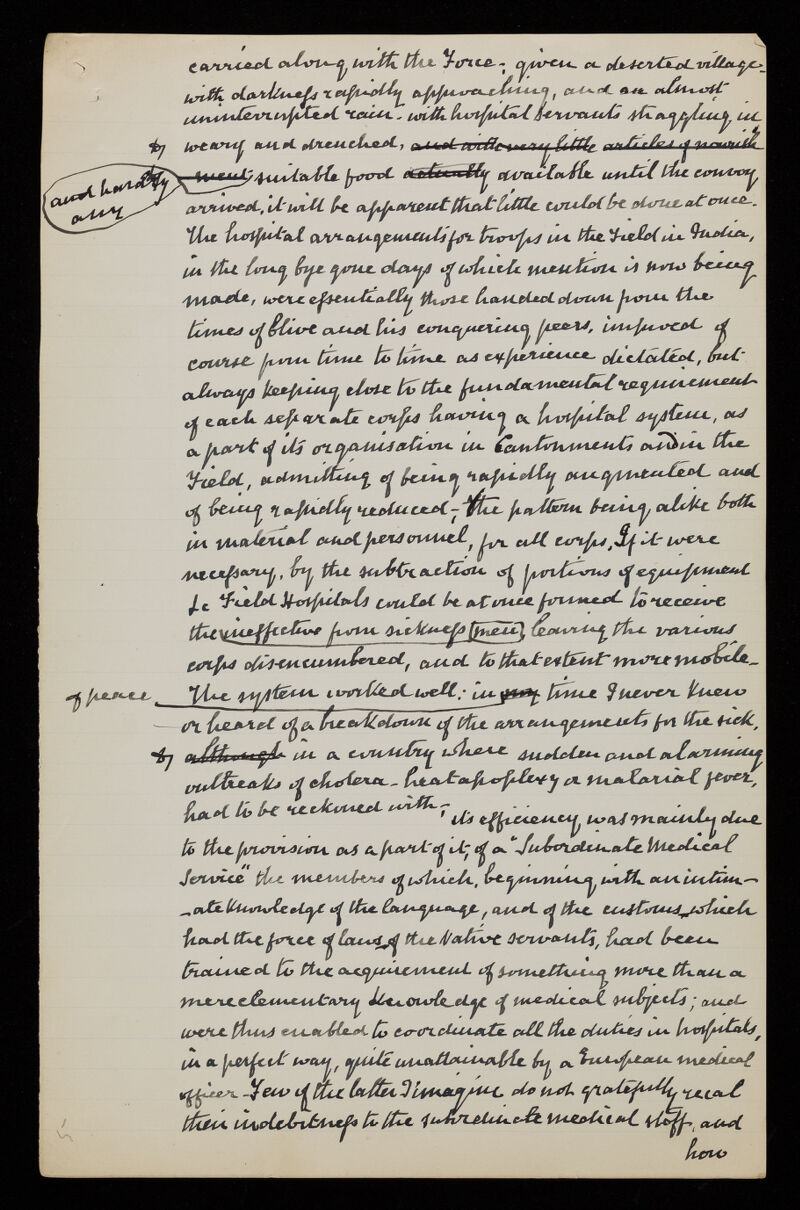 carried along with the Force; given a deserted village-
with darkness rapidly approaching, and an almost
uninterrupted rain - with hospital servants straggling in
weary and drenched, and with very little articles of nourish-
and hardly any
ment, suitable food actually available until the convoy
arrived, it will be apparent that little could be done at once.
The hospital arrangements for troops in the Field in India,
in the long bye gone days of which mention is now being
made, were essentially those handed down from the
times of Clive and his conquering peers, improved of
course from time to time as experience dictated, but
always keeping close to the fundamental requirement
of each separate corps having a hospital system, as
a part of its organisation in Cantonments and in the
Field, admitting of being rapidly augmented and
of being rapidly reduced -, the pattern being alike both
in material and personnel, for all corps, If it were
necessary, by the subtraction of portions of equipment
&c Field Hospitals could be at once formed to receive
the ineffective from sickness [men], leaving the various
corps disencumbered, and to that extent more mobile -
of peace
The system worked well: in my time I never knew
or heard of a breakdown of the arrangements for the sick,
although in a country where sudden and alarming
outbreaks of cholera - heat apoplexy or malarial fever,
had to be reckoned with; its efficiency was mainly due
to the provision as a part of it, of a "Subordinate Medical
Service" the members of which, beginning with an intim-
-ate knowledge of the language, and of the customs which
had the force of laws of the Native servants, had been
trained to the acquirement of something more than a
mere elementary knowledge of medical subjects; and
were thus enabled to coordinate all the duties in hospitals,
in a perfect way, quite unattainable by a European medical
officer - Few of the latter I imagine do not gratefully recal
their indebtness to the subordinate medical staff, and
how